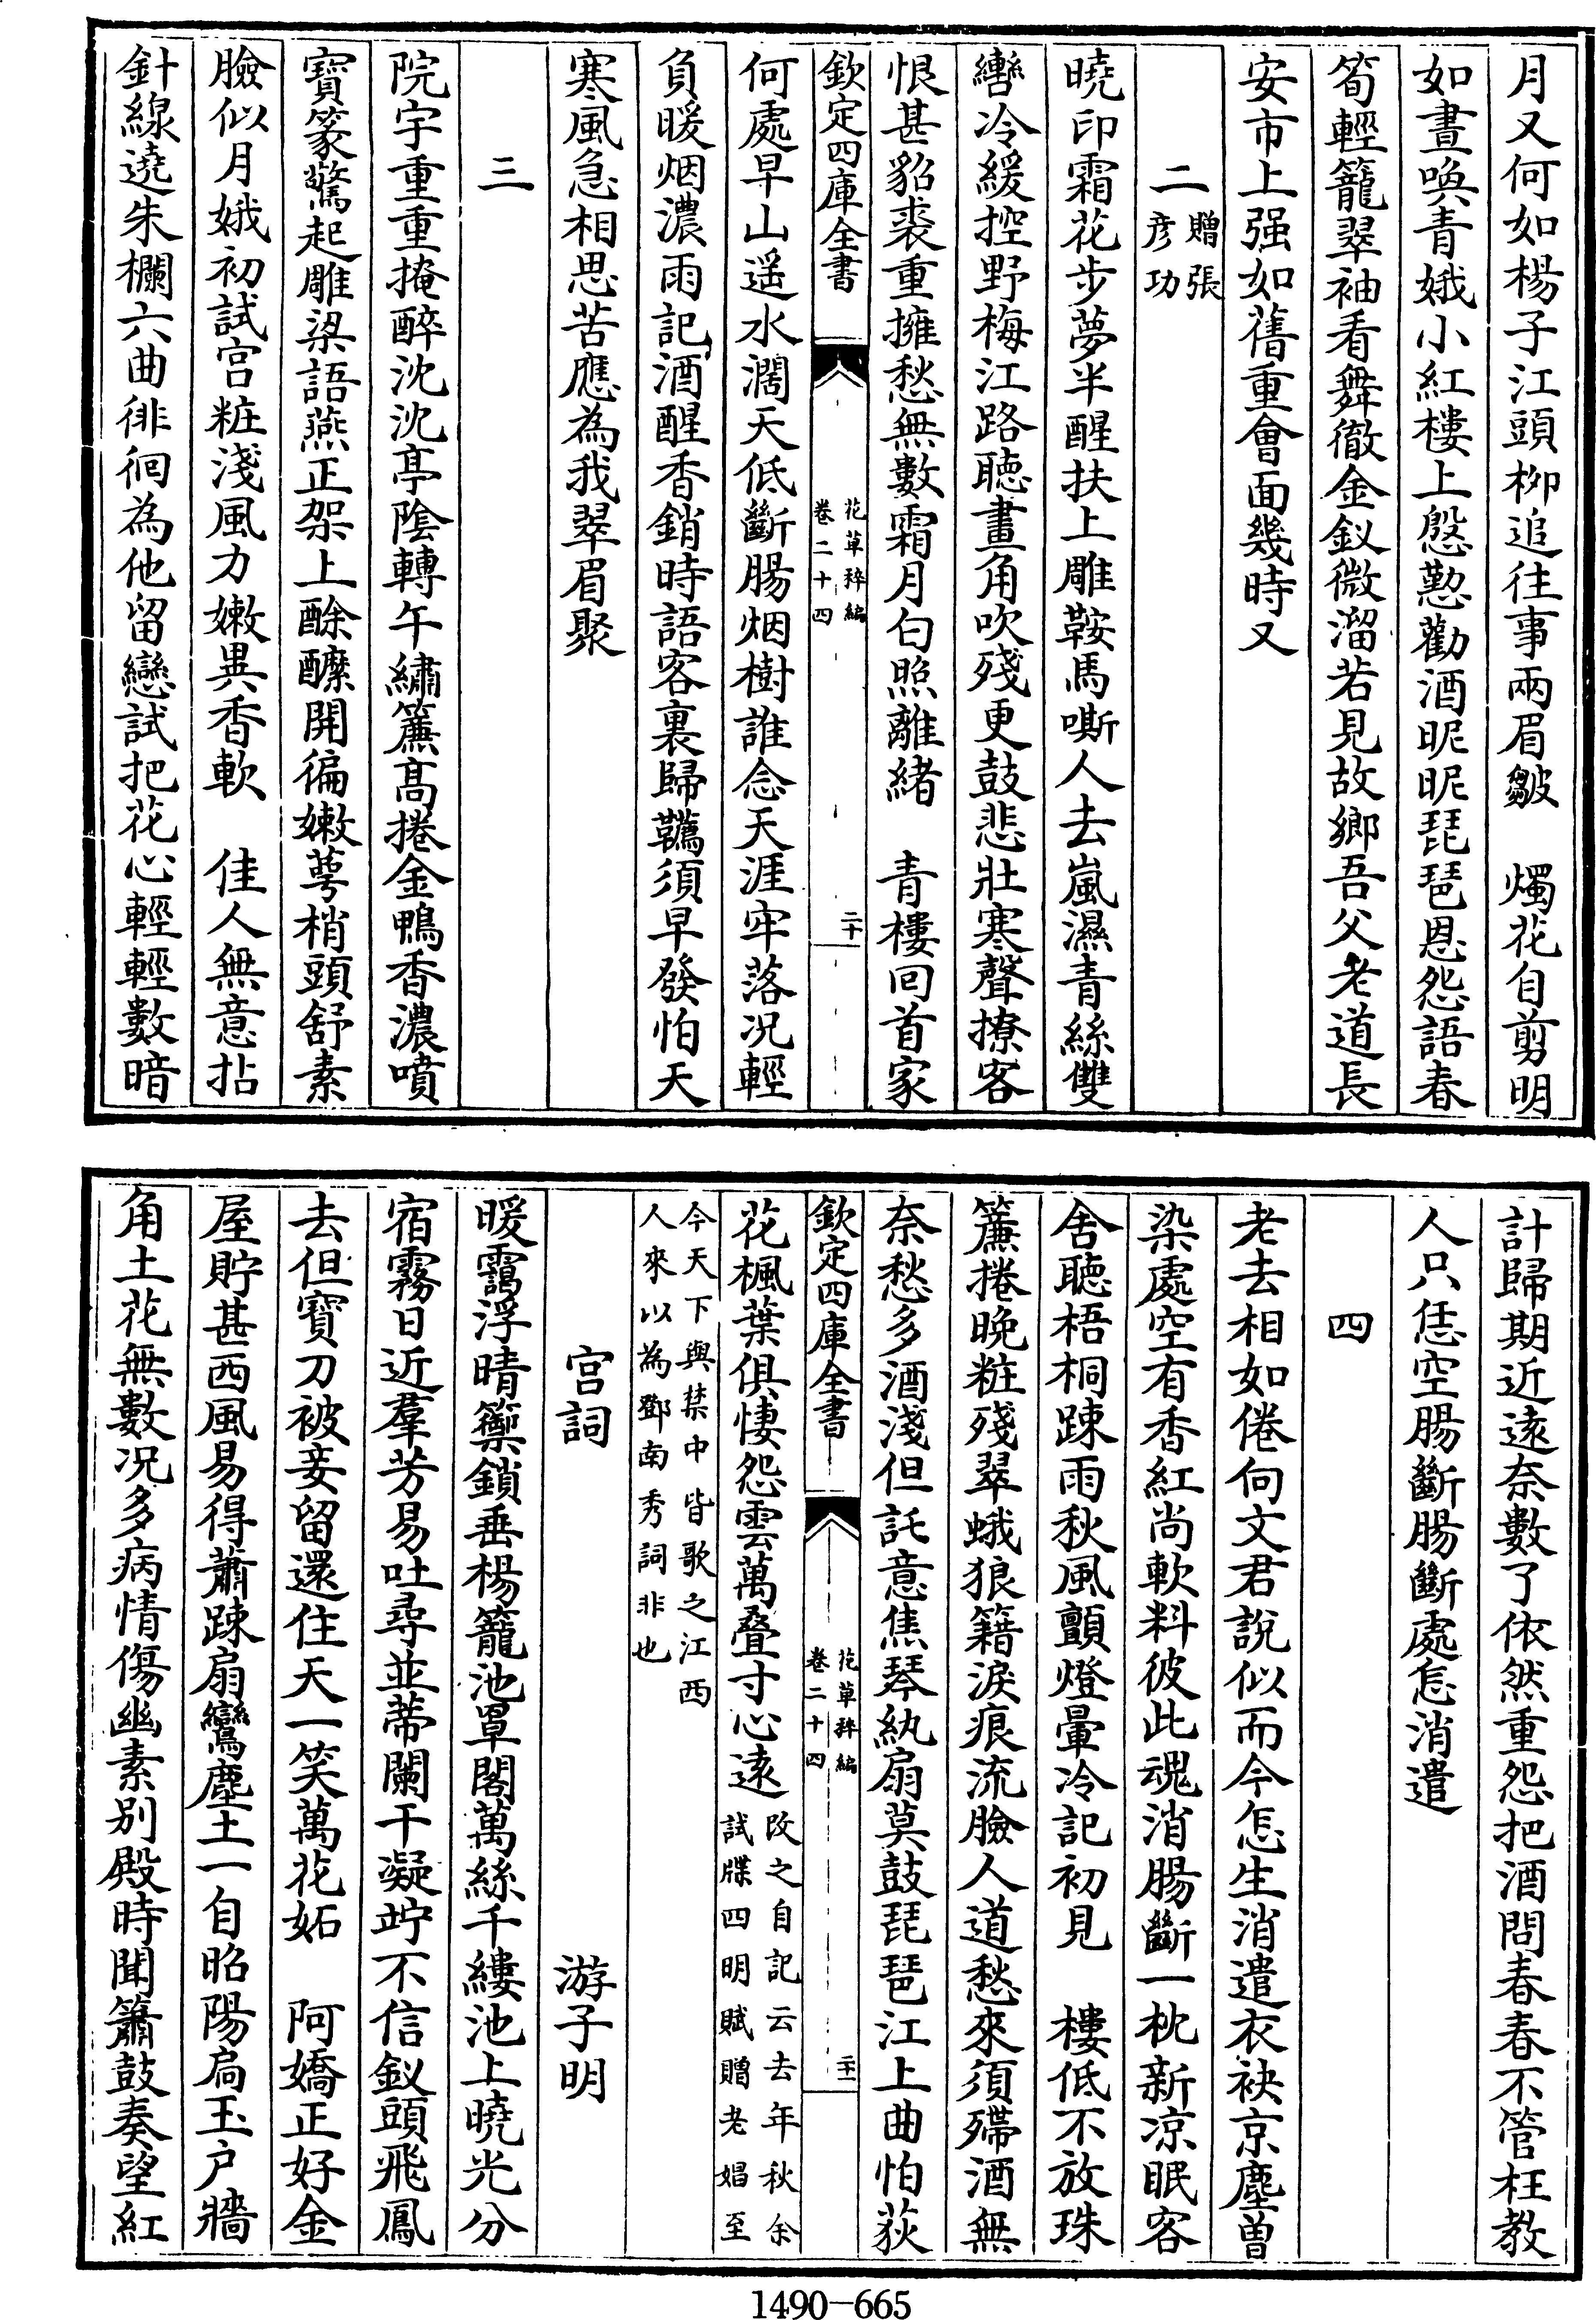 月又何如楊子江頭柳追往事兩眉皺　燭花自剪明
如晝喚青娥小紅樓上慇懃勸酒昵昵琵琶恩怨語春
筍輕籠翠袖看舞徹金釵微溜若見故鄉吾父老道長
安市上强如舊重會面幾時又
二贈張彦功
曉印霜花步夢半醒扶上雕鞍馬嘶人去嵐濕青絲雙
轡冷緩控野梅江路聽畫角吹殘更鼓悲壯寒聲撩客
恨甚貂裘重擁愁無數霜月白照離緒　青樓回首家
欽定四庫全書
花草稡編
卷二十四
二十
何處早山遥水濶天低斷腸烟樹誰念天涯牢落况輕
負暖烟濃雨記酒醒香銷時語客裏歸韉須早發怕天
寒風急相思苦應為我翠眉聚
三
院宇重重掩醉沈沈亭陰轉午繡簾高捲金鴨香濃噴
寶篆驚起雕梁語燕正架上酴醿開徧嫩萼梢頭舒素
臉似月娥初試宫粧淺風力嫩異香軟　佳人無意拈
針線遶朱欄六曲徘徊為他留戀試把花心輕輕數暗
計歸期近遠奈數了依然重怨把酒問春春不管枉教
人只恁空腸斷腸斷處怎消遣
四
老去相如倦向文君說似而今怎生消遣衣袂京塵曽
染處空有香紅尚軟料彼此魂消腸斷一枕新凉眠客
舍聽梧桐踈雨秋風顫燈暈冷記初見　樓低不放珠
簾捲晚粧殘翠蛾狼籍淚痕流臉人道愁來須殢酒無
奈愁多酒淺但託意焦琴紈扇莫鼓琵琶江上曲怕荻
欽定四庫全書
花草稡編
卷二十四
二十一
花楓葉俱悽怨雲萬叠寸心遠改之自記云去年秋余
試牒四明賦贈老娼至
今天下與禁中皆歌之江西
人來以為鄧南秀詞非也
宫詞　游子明
暖靄浮晴籞鎖垂楊籠池罩閣萬絲千縷池上曉光分
宿霧日近羣芳易吐尋並蒂闌干凝竚不信釵頭飛鳳
去但寶刀被妾留還住天一笑萬花妬　阿嬌正好金
屋貯甚西風易得蕭踈扇鸞塵土一自昭陽扃玉户牆
角土花無數况多病情傷幽素别殿時聞簫鼓奏望紅
1490—665